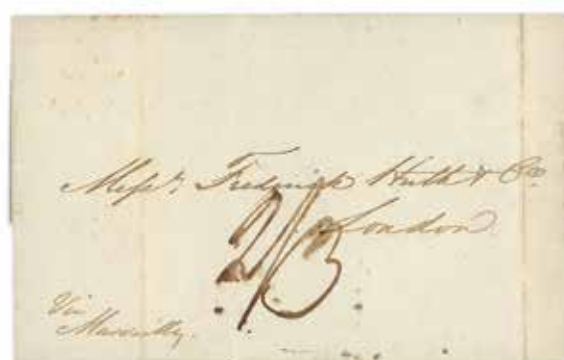 Messrs Fredrick Huth & Co
London
2/3
Via
Marseilles.